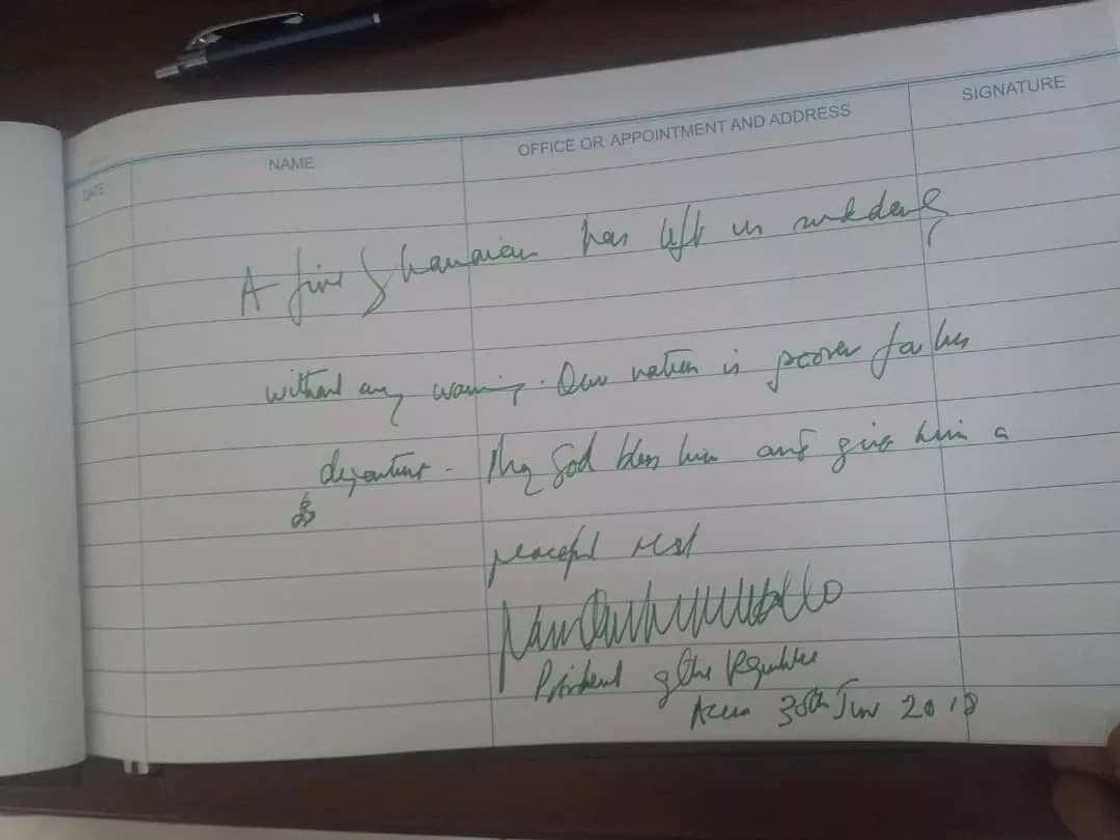 DATE NAME OFFICE OR APPOINTMENT AND ADDRESS SIGNATURE
A fine Ghanaian has left us suddenly
without any warning. Our nation is poorer for his
departure. May God bless him and give him a
peaceful rest
President of the Republic
Accra 30th June 2018